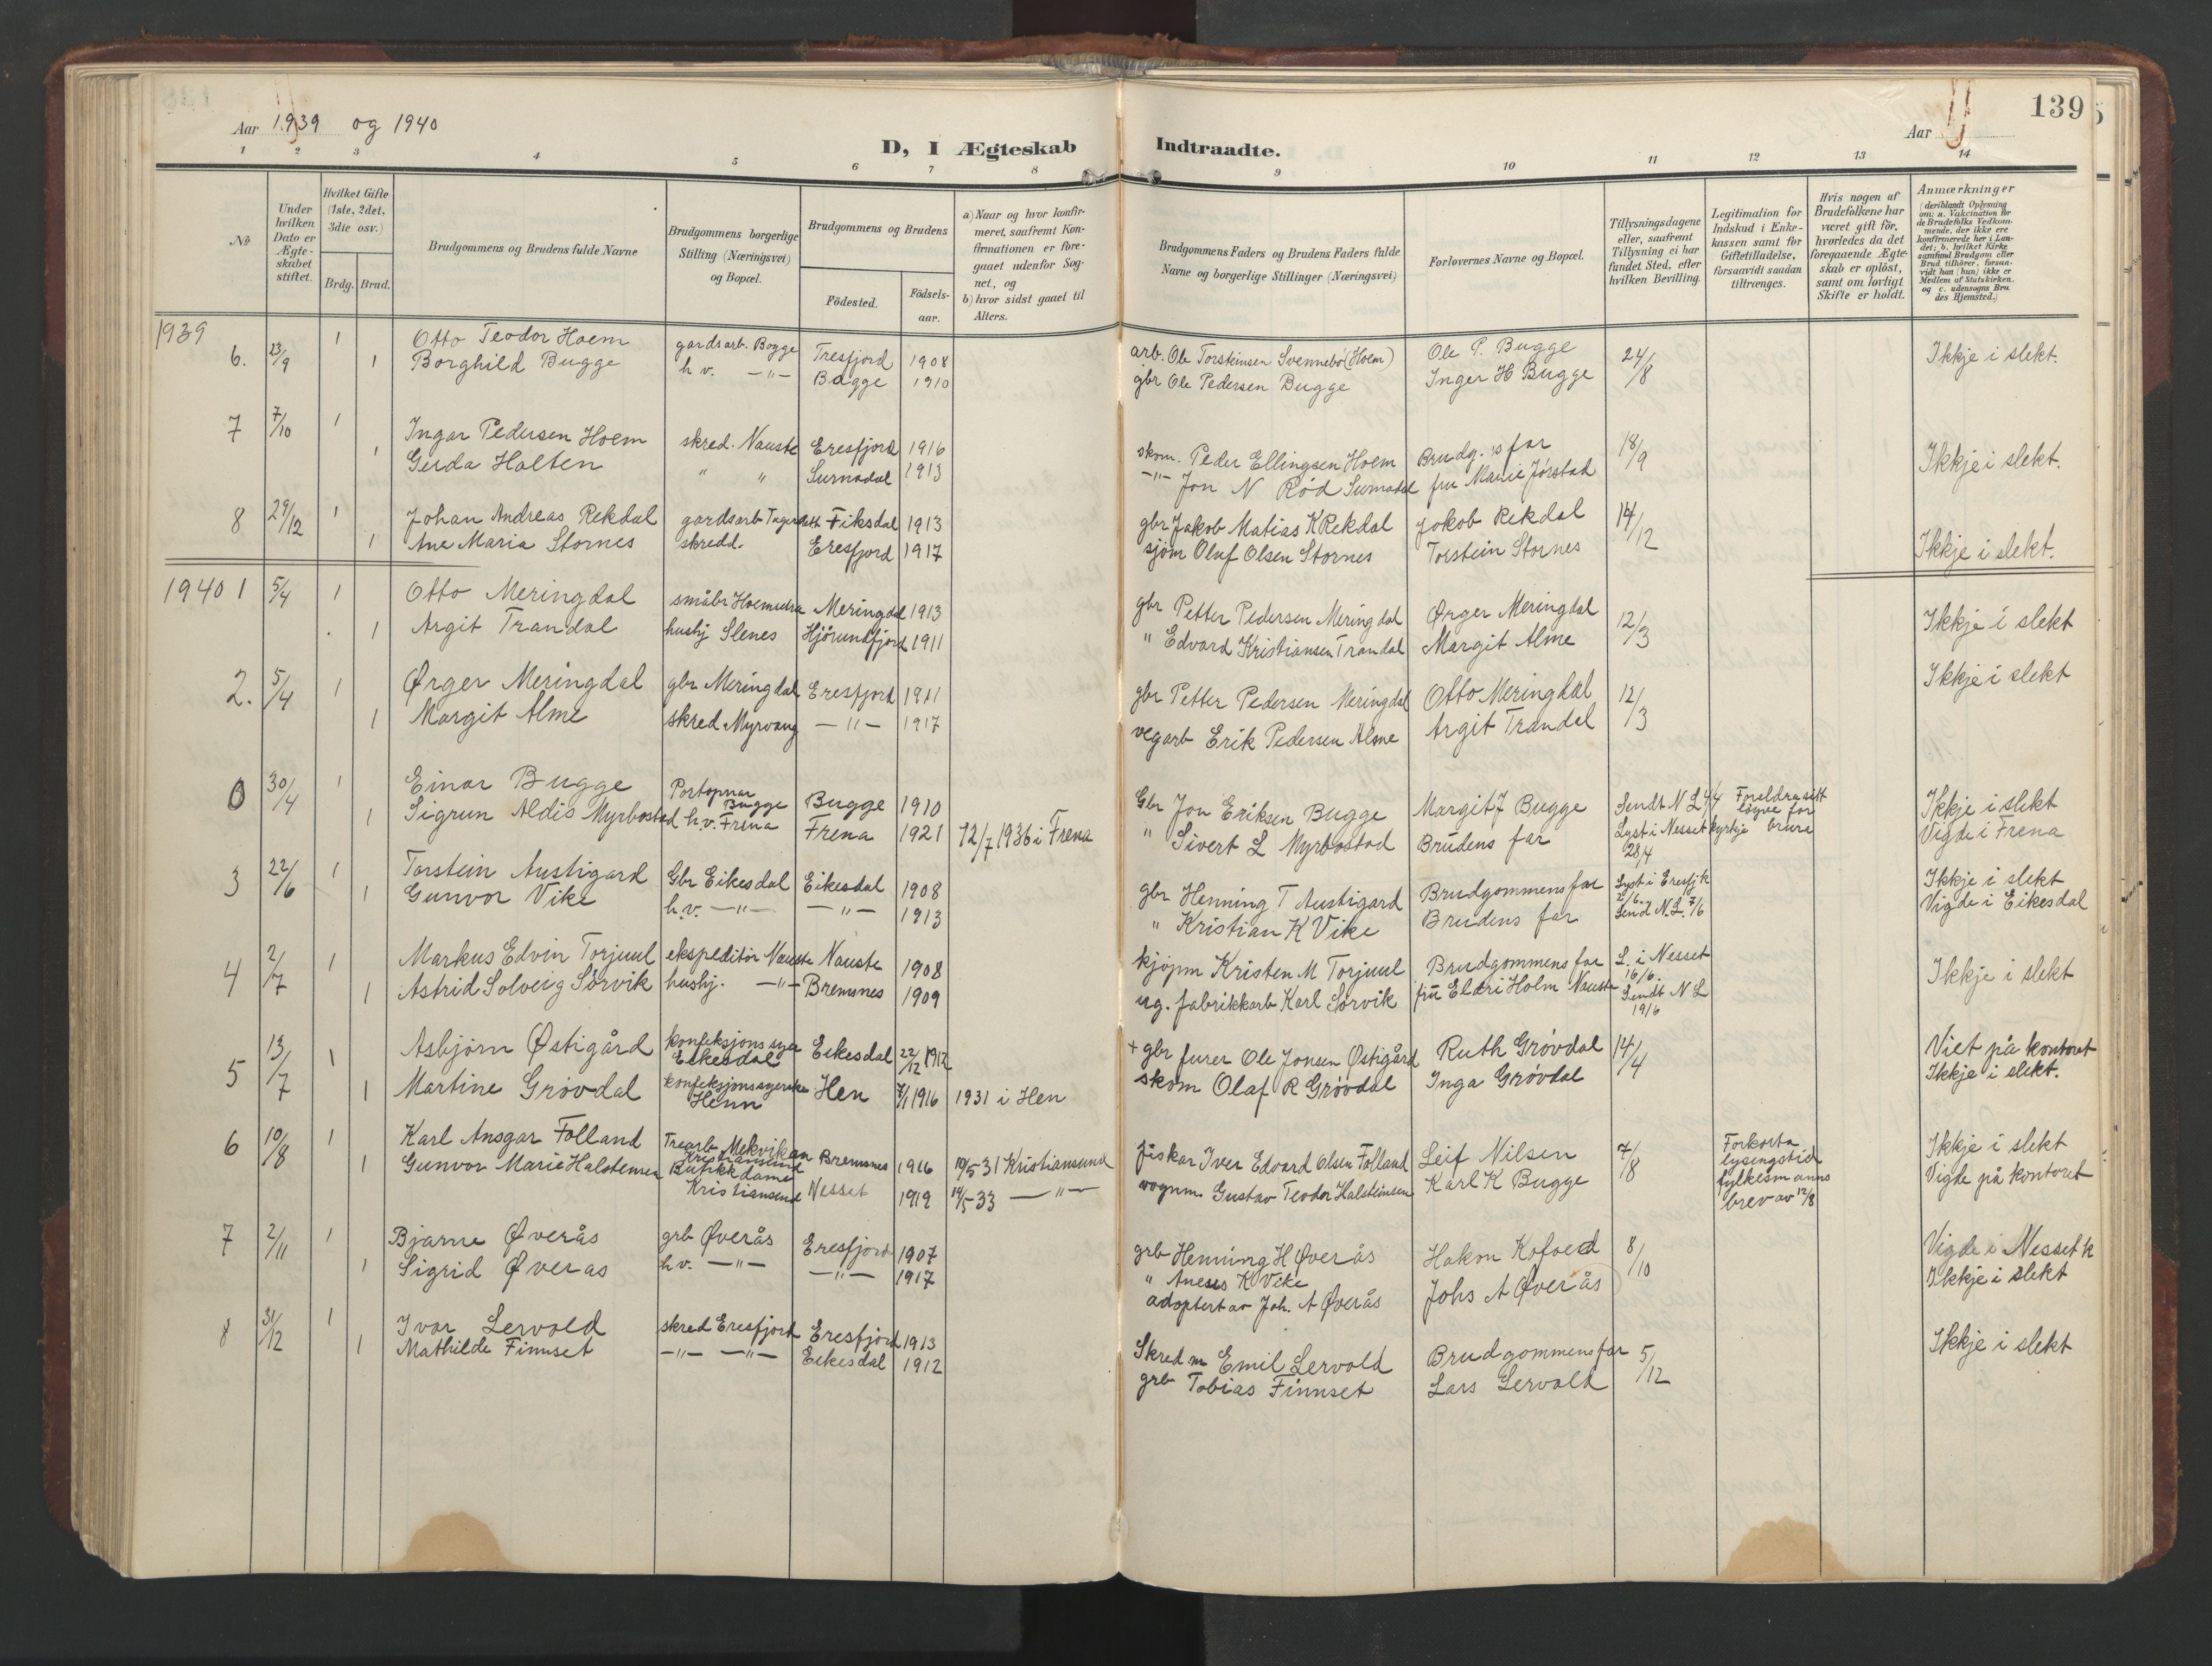 Aar 1939 og 1940
D, I Ægteskab Indtraadte.
Aar
139
1 2 3 4 5 6 7 8 9 10 11 12 13 14
No
Under hvilken Dato er Ægteskabet stiftet.
Hvilket Gifte (1ste, 2det, 3die osv.)
Brdg. Brud.
Brudgommens og Brudens fulde Navne
Brudgommens borgerlige Stilling (Næringsvei) og Bopæl.
Brudgommens og Brudens
Födested.
Födsels-aar.
a) Naar og hvor konfirmeret, saafremt Konfirmationen er foregaaet udenfor Sognet, og
b) hvor sidst gaaet til Alters.
Brudgommens Faders og Brudens Faders fulde Navne og borgerlige Stillinger (Næringsvei)
Forlovernes Navne og Bopæl.
Tillysningsdagene eller, saafremt Tillysning ei har fundet Sted, efter hvilken Bevilling.
Legitimation for Indskud i Enkekassen samt for Giftetilladelse, forsaavidt saadan tiltrænges.
Hvis nogen af Brudefolkene har været gift för, hvorledes da det foregaaende Ægteskab er oplöst, samt om lovligt Skifte er holdt.
Anmærkninger (deriblandt Oplysning om: a. Vakcination for de Brudefolks Vedkommende, der ikke ere konfirmerede her i Landet; b. hvilket Kirkesamfund Brudgom eller Brud tilhörer, forsaavidt han (hun) ikke er Medlem af Statskirken. og c. udensogns Brudes Hjemsted.)
1939
6. 23/9 1 Otto Teodor Hoem gardsarb. Bogge Tresfjord 1908 arb. Ole Torsteinsen Svennebö (Hoem) Ole P. Bugge 24/8 Ikkje i slekt.
1 Borghild Bugge h v. —"— Bugge 1910 gbr Ole Pedersen Bugge Inger H Bugge
7 7/10 1 Ingar Pedersen Hoem skred. Nauste Eresfjord 1916 skom. Peder Ellingsen Hoem Brudg.s far 18/9 Ikkje i slekt.
1 Gerda Halten " " Surnadal 1913 —"— Jon N Rød Surnadal fru Marie Jörstad
8 29/12 1 Johan Andreas Rekdal gardsarb Fiksdal 1913 gbr Jakob Matias K Rekdal Jakob Rekdal 14/12
1 Ane Maria Stornes skredd. Eresfjord 1917 sjöm Olaf Olsen Stornes Torstein Stornes Ikkje i slekt.
1940 1 5/4 1 Otto Meringdal småbr Meringdal 1913 gbr Petter Pedersen Meringdal Ørger Meringdal 12/3 Ikkje i slekt
1 Argit Trandal hushj Slenes Hjörundfjord 1911 " Edvard Kristiansen Trandal Margit Alme
2. 5/4 1 Ørger Meringdal gbr Meringdal Eresfjord 1911 gbr Petter Pedersen Meringdal Otto Meringdal 12/3 Ikkje i slekt
1 Margit Alme skred Myrvang —"— 1917 vegarb Erik Pedersen Alme Argit Trandal
0 30/4 1 Einar Bugge Portopnar Bugge Bugge 1910 Gbr Jon Eriksen Bugge Margit J Bugge Sendt N L 4/4 Foreldra sitt löyve for brura Ikkje i slekt
1 Sigrun Aldis Myrbostad h.v. Frena Frena 1921 12/7 1936 i Frena " Sivert L Myrbostad Brudens far Lyst i Nesset kyrkje 28/4 Vigde i Frena
3 22/6 1 Torstein Austigard Gbr Eikesdal Eikesdal 1908 gbr Henning T Austigard Brudgommens far Lyst i Eresfj k 2/6 Ikkje i slekt
1 Gunvor Vike h.v. —"— —"— 1913 " Kristian K Vike Brudens far Send N.L. 7/6 Vigde i Eikesdal
4 2/7 1 Markus Edvin Torjuul ekspeditör Nauste Nauste 1908 kjöpm Kristen M Torjuul Brudgommens far L. i Nesset 16/6. Ikkje i slekt
1 Astrid Solveig Sörvik hushj. —"— Bremsnes 1909 ug. fabrikkarb Karl Sörvik fru Eldri Holm Nauste Sendt N L 19/6
5 13/7 1 Asbjörn Østigård konfeksjons syer Eikesdal Eikesdal 22/12 1912 + gbr furer Ole Jonsen Østigård Ruth Grövdal 14/4 Viet på kontoret
1 Martine Grövdal konfeksjonssyerske Henn Hen 7/1 1916 1931 i Hen skom Olaf R Grövdal Inga Grövdal Ikkje i slekt.
6 10/8 1 Karl Ansgar Folland Trearb Mekvikan Kristiansund Bremsnes 1916 19/5 31 Kristiansund fiskar Iver Edvard Olsen Folland Leif Nilsen 7/8 Forkorta lysingstid fylkesmanns brev av 12/8 Ikkje i slekt
1 Gunvor Marie Halstensen Butikkdame Kristiansund Nesset 1919 14/5-33 —"— vognm. Gustav Teodor Halsteinsen Karl K Bugge Vigde på kontoret
7 2/11 1 Bjarne Øverås grb Øverås Eresfjord 1907 grb Henning H Øverås Hakon Kofoed 8/10 Vigde i Nesset k
1 Sigrid Øverås h.v. —"— —"— 1917 " K Vike adoptert av Joh. A Øverås Johs A Øverås Ikkje i slekt
8 31/12 1 Ivar Lervold skred Eresfjord Eresfjord 1913 Skred m Emil Lervold Brudgommens far 5/12 Ikkje i slekt
1 Mathilde Finnset —"— —"— Eikesdal 1912 grb Tobias Finnset Lars Lervold